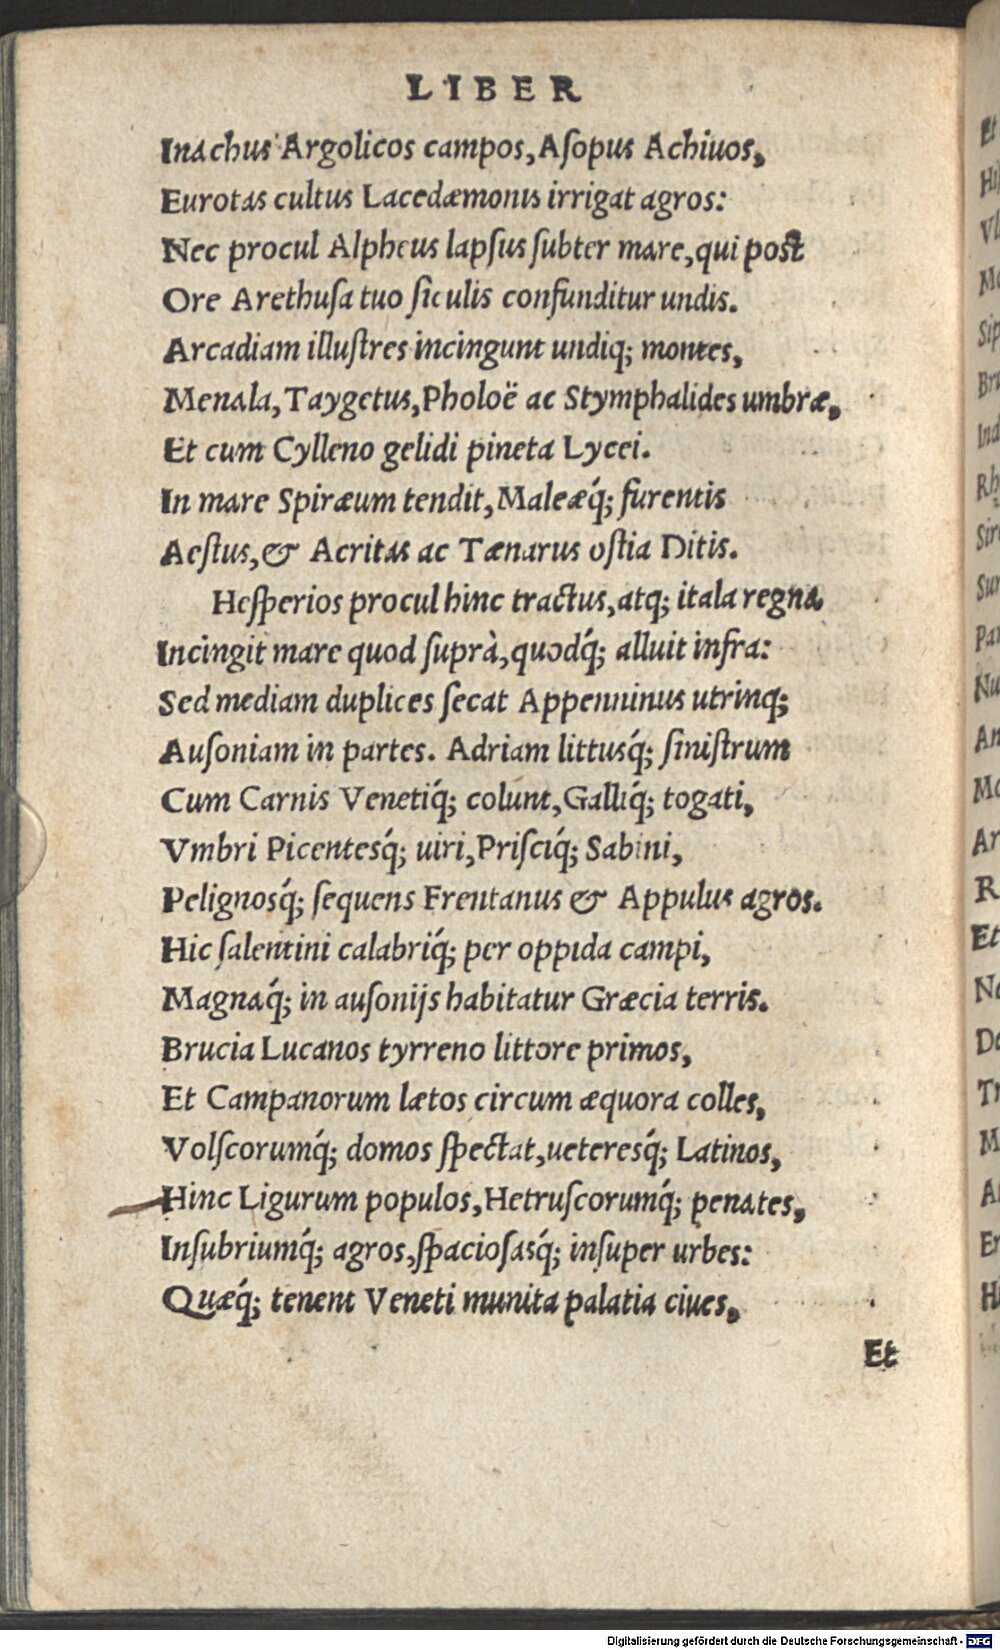 LIBER
Inachus Argolicos campos, Aſopus Achiuos,
Eurotas cultus Lacedæmonis irrigat agros:
Nec procul Alpheus lapſus ſubter mare, qui poſt
Ore Arethuſa tuo ſiculis confunditur undis.
Arcadiam illuſtres incingunt undiq; montes,
Menala, Taygetus, Pholoë ac Stymphalides umbræ,
Et cum Cylleno gelidi pineta Lycei.
In mare Spiræum tendit, Maleæq́; furentis
Aeſtus, & Acritas ac Tænarus oſtia Ditis.
Heſperios procul hinc tractus, atq; itala regna
Incingit mare quod ſuprà, quodq́; alluit infra:
Sed mediam duplices ſecat Appenninus utrinq;
Auſoniam in partes. Adriam littusq́; ſiniſtrum
Cum Carnis Venetiq́; colunt, Galliq́; togati,
Vmbri Picentesq́; uiri, Priſciq́; Sabini,
Pelignosq́; ſequens Frentanus & Appulus agros.
Hic ſalentini calabriq́; per oppida campi,
Magnaq́; in auſonijs habitatur Græcia terris.
Brucia Lucanos tyrreno littore primos,
Et Campanorum lætos circum æquora colles,
Volſcorumq́; domos ſpectat, ueteresq́; Latinos,
Hinc Ligurum populos, Hetruſcorumq́; penates,
Inſubriumq́; agros, ſpacioſasq́; inſuper urbes:
Quæq́; tenent Veneti munita palatia ciues,
Et
Digitalisierung gefördert durch die Deutsche Forschungsgemeinschaft - DFG